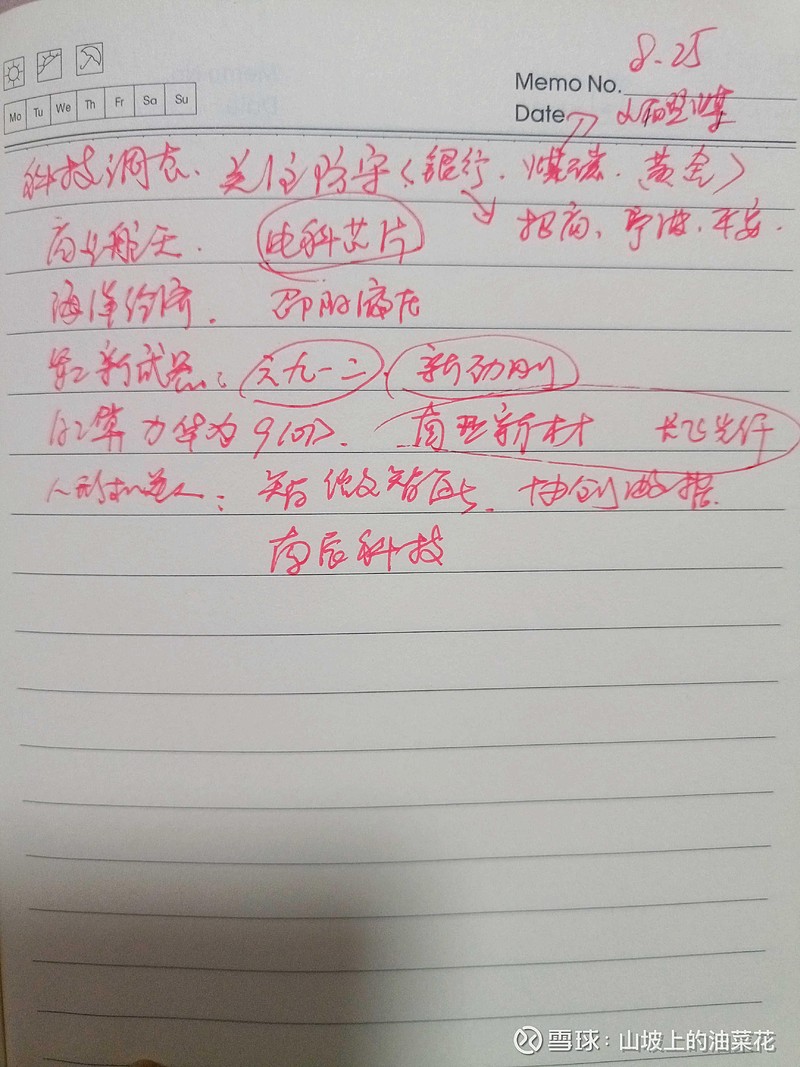 8.25
Memo No.
Date
山西
Mo Tu We Th Fr Sa Su
科技调整、关注防守（银行、煤炭、黄金）
招商、宁波、平安.
商业航天. 电科芯片
海洋经济. 邵阳液压
军工新武器: 六九一二、新劲刚
算力华为910D. 南亚新材 长飞光纤
人形机器人: 智能、协创数据
南辰科技
雪球：山坡上的油菜花